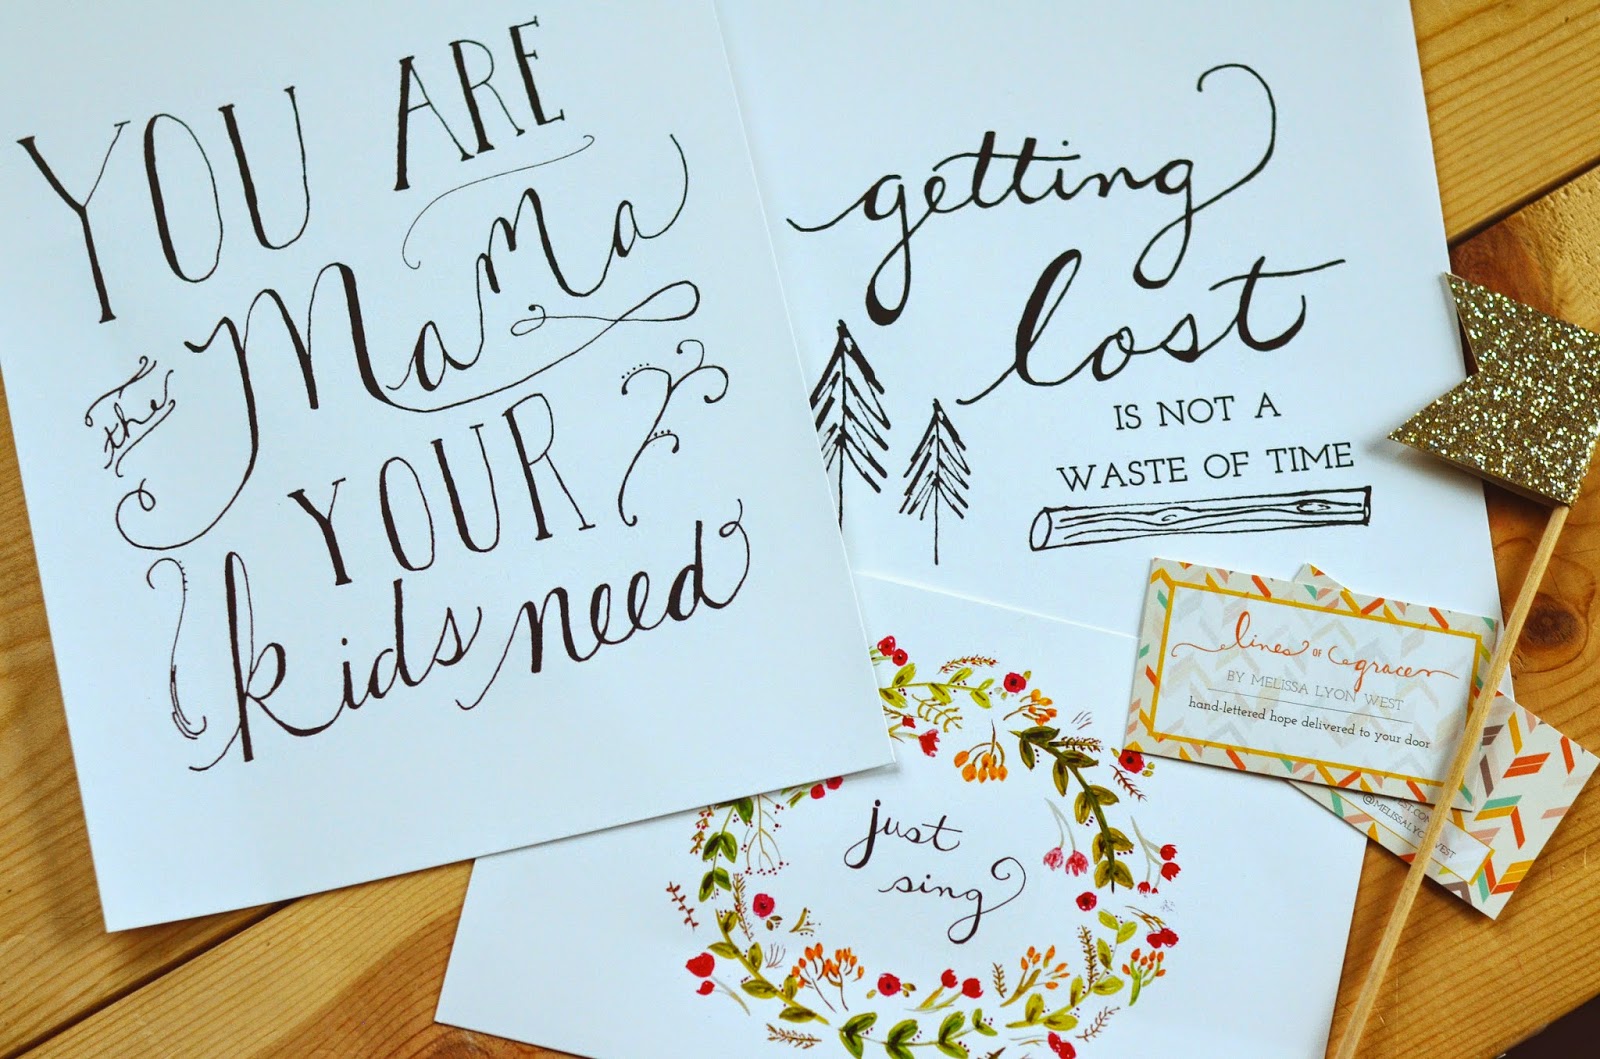 YOU ARE
the MaMa
YOUR
kids need
getting
lost
IS NOT A
WASTE OF TIME
just
sing
lines OF grace
BY MELISSA LYON WEST
hand-lettered hope delivered to your door